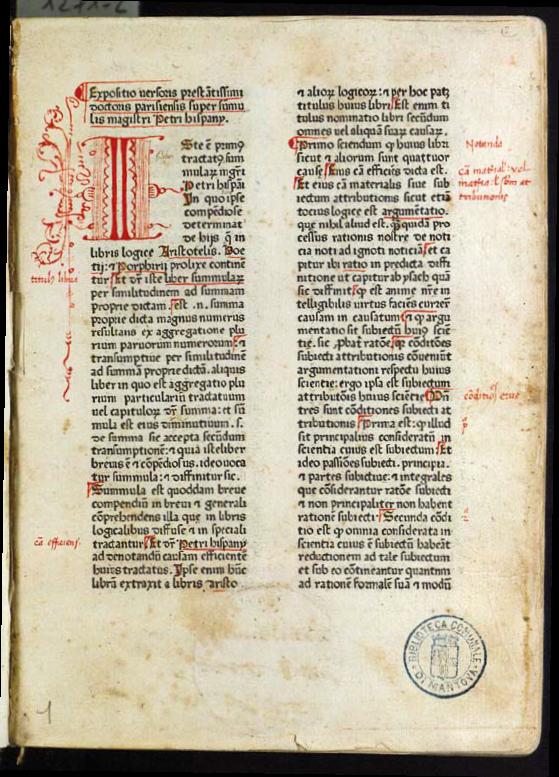 Expositio uersoris prestãtissimi
doctoris parisiensis super sumu
lis magistri Petri hispany.
Ste ẽ prim9
tractat9 sum
mular̃ mgr̃i
Petri hispãi
In quo ipse
compẽdiose
determinat
de hijs q̃ in
libros logice Aristotelis. Boe
tij: ⁊ Porphirij prolixe contine
tur Et dr̃ iste liber summulaꝝ
per similitudinem ad summam
proprie dictam. est .n. summa
proprie dicta magnus numerus
resultans ex aggregatione plu
rium paruorum numerorum: ⁊
transumptiue per similitudinẽ
ad summã proprie dictã. aliquis
liber in quo est aggregatio plu
rium particulariũ tractatuum
uel capituloꝝ dr̃ summa: et sũ
mula est eius diminutiuum. s.
de summa sie accepta secũdum
transumptionẽ: ⁊ quia iste liber
breuis ẽ ⁊ cõpediosus. ideo uoca
tur summula: ⁊ diffinitur sic.
Summula est quoddam breue
compendiũ in breui ⁊ generali
cõprehendens illa que in libris
logicalibus diffuse ⁊ in speciali
tradantur Et dr̃ Petri hispany
ad denotandũ causam efficientẽ
huius tractatus. Ipse enim hũc
librũ extraxit a libris aristo
⁊ alioꝝ logicoꝝ: ⁊ per hoc patꝫ
titulus huius libri Est enim ti
tulus nominatio libri secũdum
omnes uel aliquã suaꝝ causaꝝ.
Primo sciendum ꝙ huius libri
sicut ⁊ aliorum sunt quattuor
cause Eius cã efficiẽs dicta est.
Et eius cã materialis siue sub
iectum attributionis sicut etiã
tocius logice est argumẽtatio.
que nihil aliud est. ꝙ quidã pro
cessus rationis nostre de noti
cia noti ad ignoti noticiã et ca
pitur ibi ratio in predicta diffi
nitione ut capitur ab psach quã
sic diffinit ꝙ est anime nr̃e in
telligibilis uirtus faciẽs currer̃
causam in causatum ⁊ ꝙ argu
mentatio sit subiectũ hui9 sciẽ
tie. sic ꝓbat̃ ratõe qꝛ cõditões
subiecti attributionis cõueniũt
argumentationi respectu huius
scientie: ergo ipsa est subiectum
attributõis huius sciẽtie Vñ
tres sunt cõditiones subiecti at
tributionis Prima est: ꝙ illud
sit principalius consideratũ in
scientia cuius est subiectum Et
ideo passiões subiecti. principia.
⁊ partes subiectiue: ⁊ integrales
que cõsiderantur ratõe subiecti
⁊ non principaliter non habent
rationẽ subiecti Secunda cõdi
tio est ꝙ omnia considerata in
scientia cuius ẽ subiectũ habeãt
reductionem ad tale subiectum
et sub eo cõtineantur quantum
ad rationẽ formalẽ suã ⁊ modũ
titulus libri
cã efficiens.
Notanda
cõditiões
1
BIBLIOTECA COMUNALE
DI MANTOVA